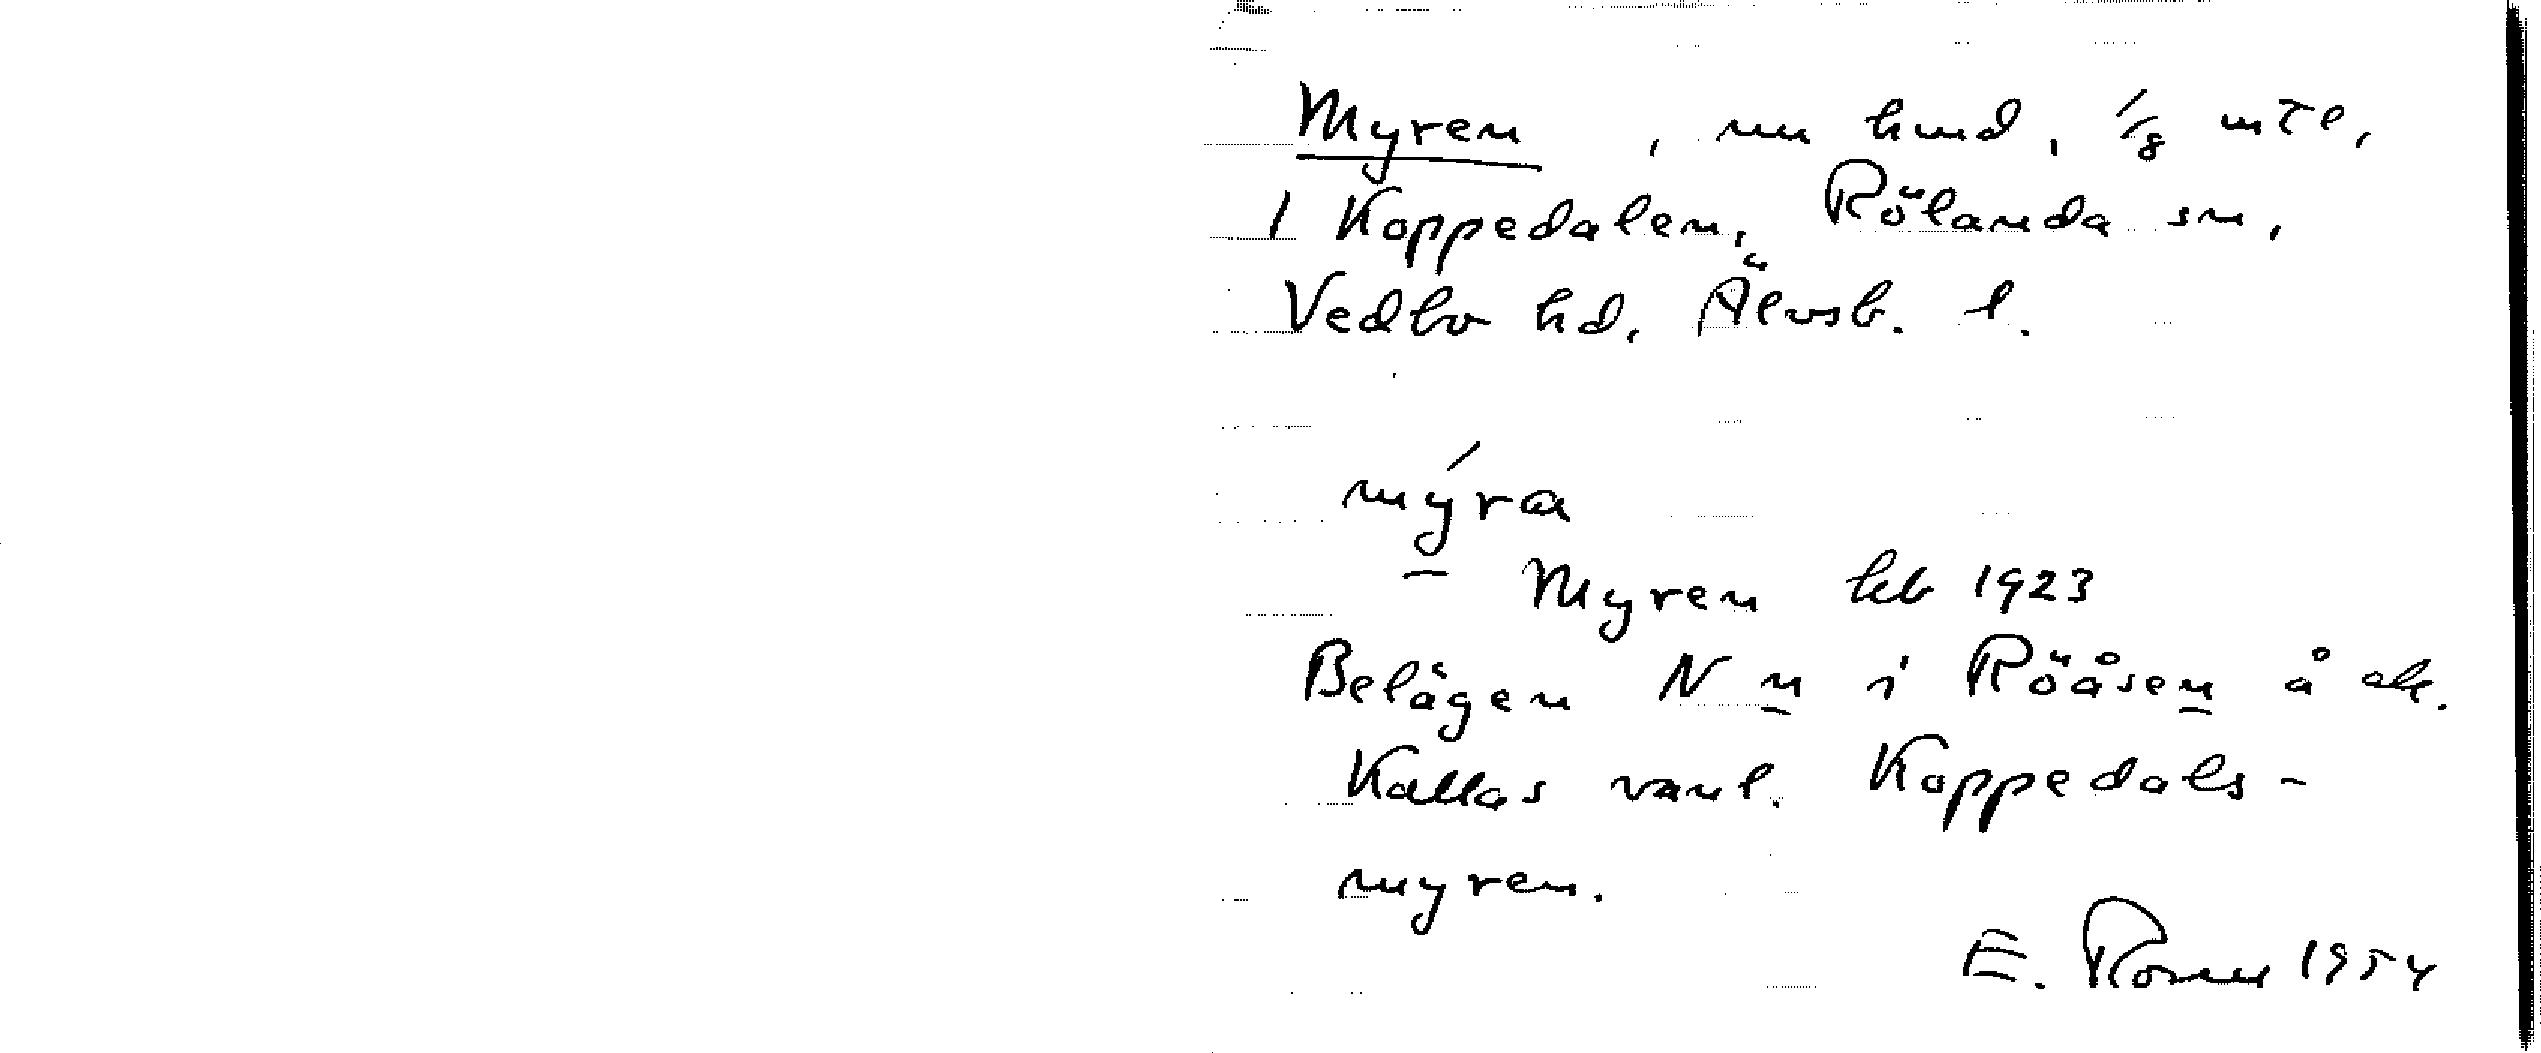 Myren, nu hmd, 1/8 mtl,
1 Koppedalen, Rölanda sn,
Vedbo hd, Älvsb. l.
mýra
Myren kb 1923
Belägen N n i Rööåsen å ek.
Kallas vanl. Koppedals-
myren.
E. 1954